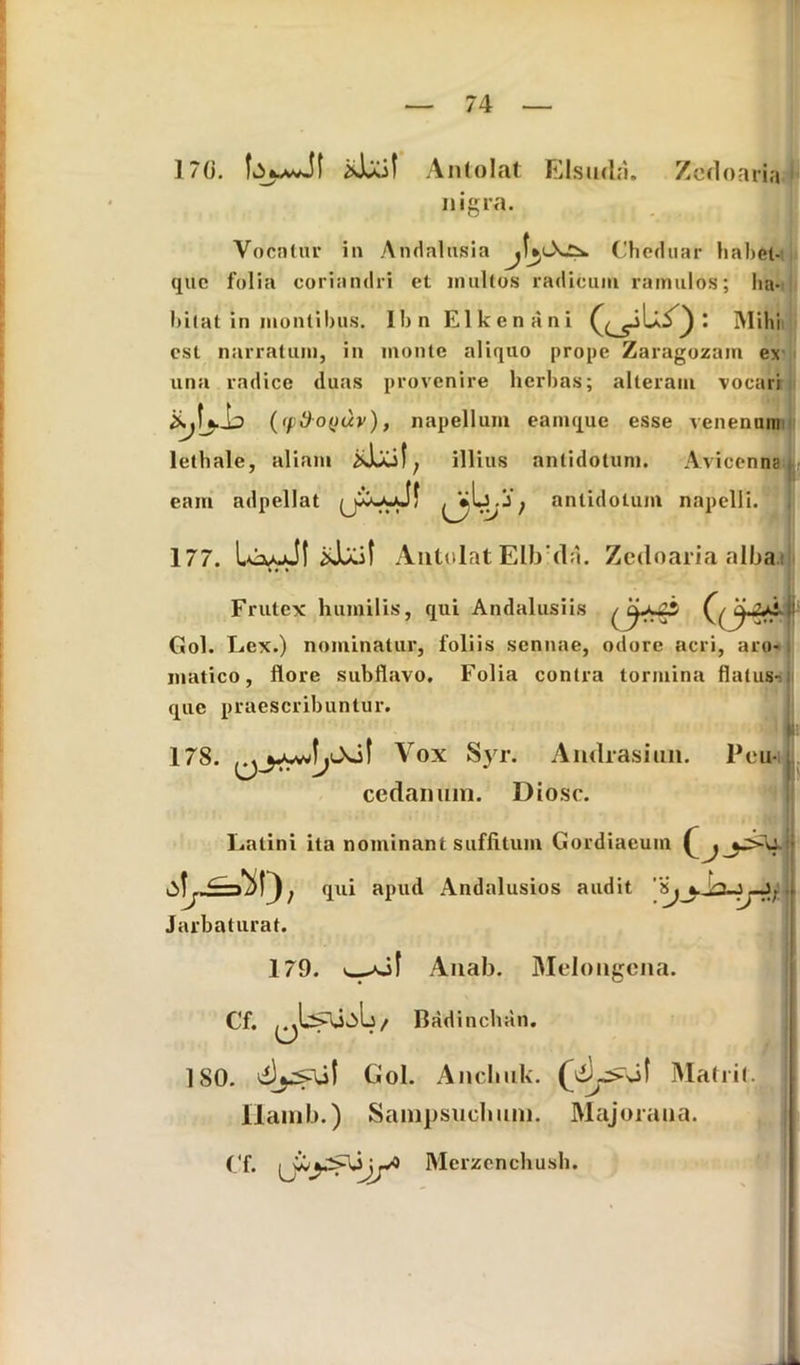 — 74 —
176. انتلة السودا Antolat Elsudà. Zedoaria
nigra.
Vocatur in Andalusia Cheduar habet-
que folia coriandri et multos radicum ramulos; ha-
bitat in montibus. Ibn Elkenàni (كناني): Mihi
est narratum, in monte aliquo prope Zaragozam ex
una radice duas provenire herbas; alteram vocari
طوارة (φθοράν), napellum eamque esse venenum
lethale, aliam انتلة, illius antidotum. Avicenna
eam adpellat ترياق البيش, antidotum napelli.
177. انتلة البيضا Antolat Elb'dà. Zedoaria alba.
Frutex humilis, qui Andalusiis
Gol. Lex.) nominatur, foliis sennae, odore acri, aro-
matico, flore subflavo. Folia contra tormina flatus-
que praescribuntur.
178. اندراسيون Vox Syr. Andrasiun. Peu-
cedanum. Diosc.
Latini ita nominant suffitum Gordiaeum (بخور
الاكراد), qui apud Andalusios audit يربطورة
Jarbaturat.
179. انب Anab. Melongena.
Cf. باذنجان, Bàdinchàn.
180. انجوك Gol. Anchuk. (انجرك Matrit.
Hamb.) Sampsuchum. Majorana.
Cf. مرزنجوش Merzenchush.